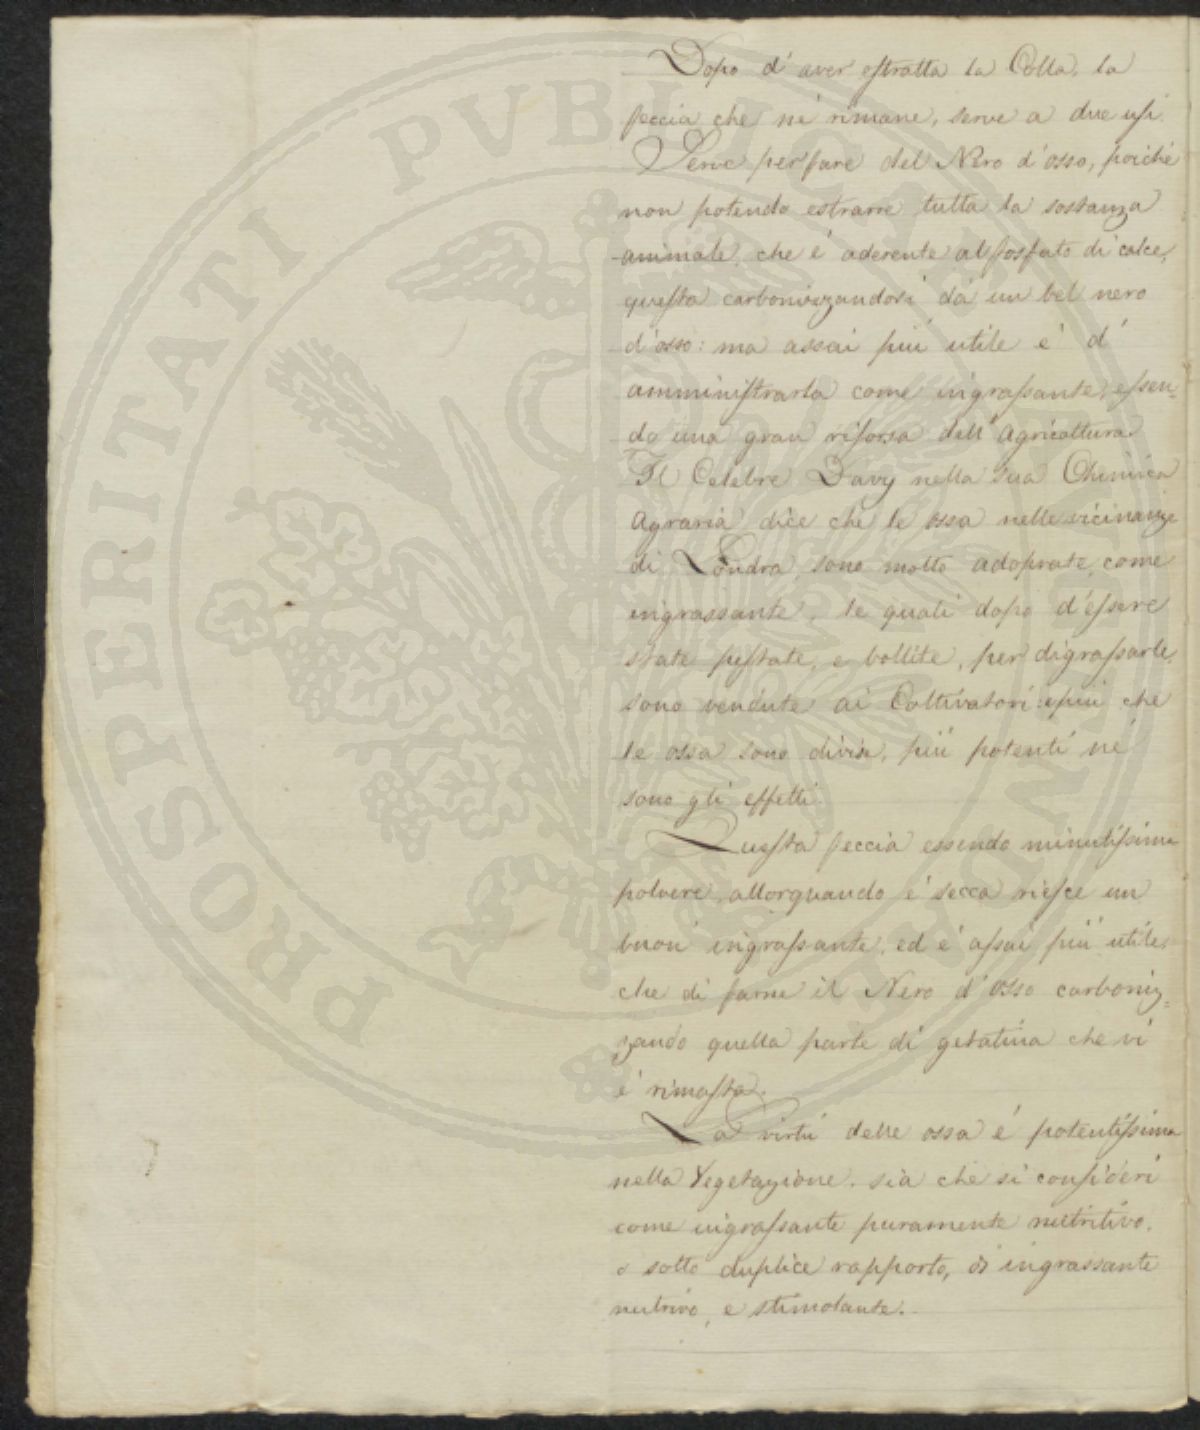 Dopo d'aver estratta la Colla, la
feccia che né rimane, serve a due usi.
Serve per fare del Nero d'osso, poiché
non potendo estrarre tutta la sostanza
animale, che é aderente al fosfato di calce,
questa carbonizzandosi dà un bel nero
d'osso: ma assai piú utile é d'
amministrarla come ingrassante, essen=
do una gran risorsa dell'Agricoltura
Il Celebre Davy nella sua Chimica
Agraria dice che le ossa nelle vicinanze
di Londra, sono molto adoprate, come
ingrassante, le quali dopo d'essere
state pestate, e bollite, per digrassarle,
sono vendute ai Coltivatori: e piú che
le ossa sono divise, piú potenti né
sono gli effetti.
Questa feccia essendo minutissima
polvere, allorquando é secca riesce un
buon ingrassante, ed é assai piú utile,
che di farne il Nero d'osso carboniz=
zando quella parte di gelatina che vi
é rimasta.
La virtú delle ossa é potentissima
nella Vegetazione, sia che si consideri
come ingrassante puramente nutritivo,
o sotto duplice rapporto, di ingrassante
nutrivo, e stimolante.
PROSPERITATI PVBLICAE